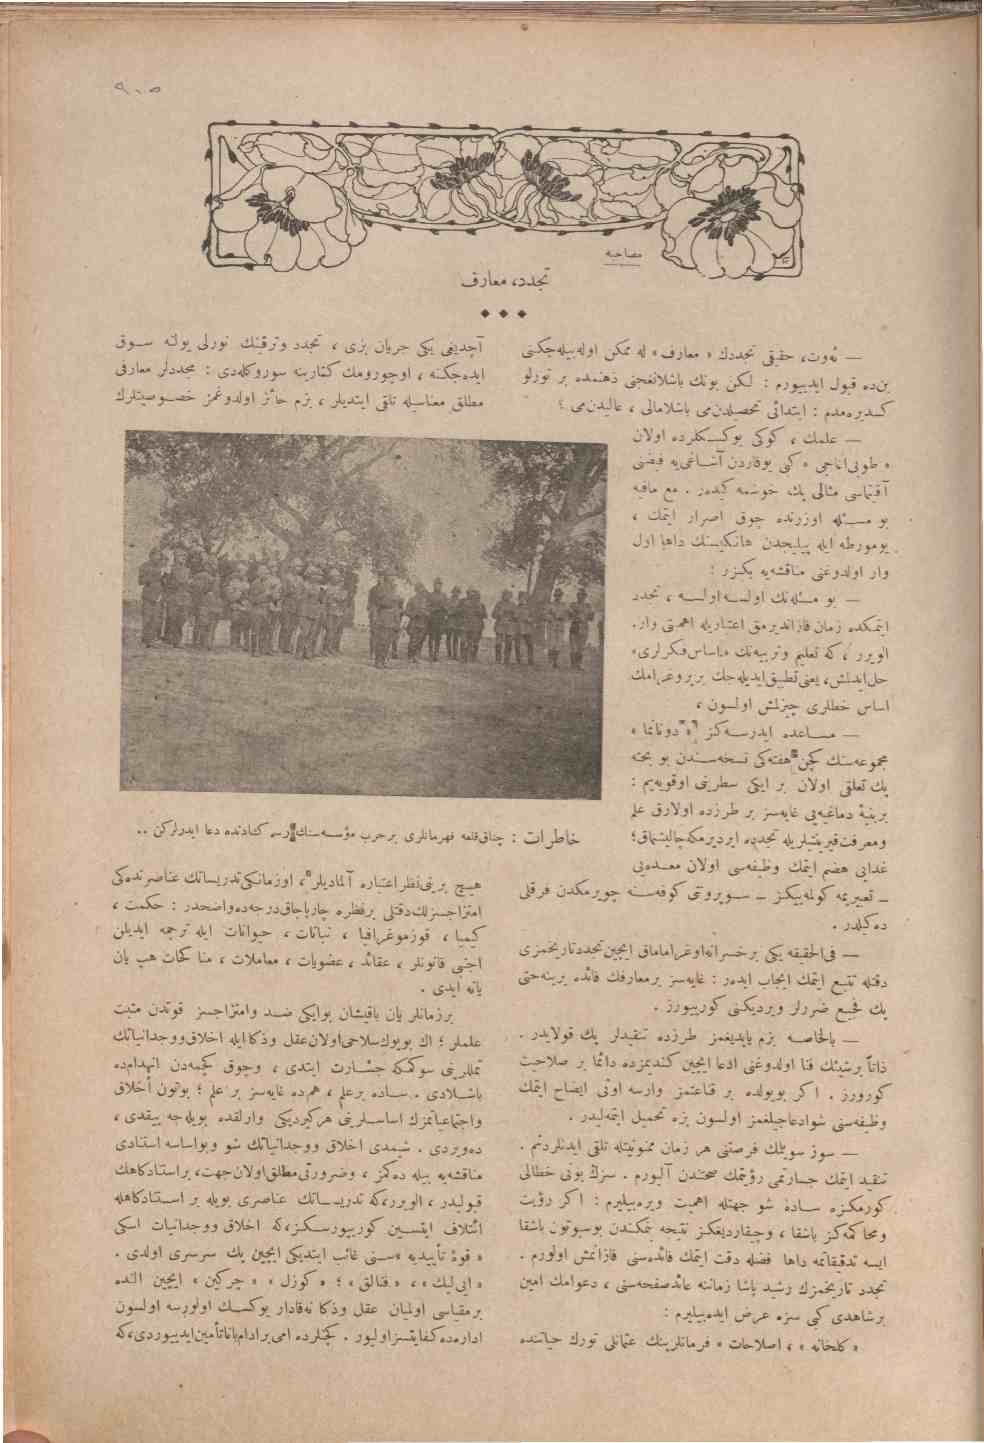 ٩٠٥
مصاحبه
تجدد، معارف
— ئه‌وت، حقيقى تجددك « معارف » له ممكن اوله‌بيله‌جكنى
بن‌ده قبول ايدييورم : لكن بونك باشلانغجنى ذهنمده بر تورلو
كسديره‌مدم : ابتدائى تحصيلدن‌مى باشلامالى ، عاليدن‌مى ؟
— علمك ، كوكى يوكسكلرده اولان
« طوبى اغاجى » كبى يوقاردن آشاغى‌يه فيضنى
آقيتماسى مثالى پك خوشمه كيدەر . مع مافيه
بو مسئله اوزرنده چوق اصرار ايتمك ،
يومورطه ايله پيليجدن هانكيسنك داها اول
وار اولدوغنى مناقشه‌يه بكزر !
— بو مسئله‌نك اولسه اولسه ، تجدد
ايتمكده زمان قازانديرمق اعتباريله اهميتى وار.
الويرر ، كه تعليم وتربيه‌نك «اساس فكرلرى»
حل ايدلش، يعنى تطبيق ايديله‌جك بر پروغرامك
اساس خطلرى چيزلمش اولسون ،
— مساعده ايدرسه‌كز « دونانما »
مجموعه‌سنك كچن هفته‌كى نسخه‌سندن بو بحثه
پك تعلقى اولان بر ايكى سطرينى اوقويه‌يم :
بر بنيۀ دماغيه‌يى غايه‌سز بر طرزده اولارق علم
ومعرفت قيرينتيلريله تجدده ايرديرمكه چاليشماق؛
غدايى هضم ايتمك وظيفه‌سى اولان معده‌يى
— تعبيريمه كولمه‌ييكز — سوپروتى كوفه‌سنه چويرمكدن فرقلى
ده‌كيلدر .
— فى‌الحقيقه يكى بر خسرانه اوغراماماق ايچين تجدد تاريخمزى
دقتله تتبع ايتمك ايجاب ايدەر : غايه‌سز بر معارفك فائده يرينه حتى
پك فجيع ضررلر ويرديكنى كورييورز .
— بالخاصه بزم يابديغمز طرزده تنقيدلر پك قولايدر .
ذاتاً برشيئك فنا اولدوغنى ادعا ايچين كنديمزده دائما بر صلاحيت
كورورز . اكر بويولده بر قناعتمز وارسه اونى ايضاح ايتمك
وظيفه‌سنى شو ادعاجيلغمز اولسون بزه تحميل ايتمه‌ليدر .
— سوز سويلمك فرصتنى هر زمان ممنونيتله تلقى ايدنلردنم .
تنقيد ايتمك جسارتمى رؤيتمك صحتندن آليورم . سزك بونى خطالى
كورمكزه ساده شو جهتله اهميت ويره‌بيليرم : اكر رؤيت
ومحاكمه‌كز باشقا ، وچيقارديغكز نتيجه بنمكندن بوسبوتون باشقا
ايسه تدقيقاتمه داها فضله دقت ايتمك فائده‌سنى قازانمش اولورم .
تجدد تاريخمزك رشيد پاشا زماننه عائد صفحه‌سنى ، دعوامك امين
بر شاهدى كبى سزه عرض ايده‌بيليرم :
« كلخانه » ، اصلاحات » فرمانلرينك عثمانلى تورك حياتنده
آچديغى يكى جريان بزى ، تجدد وترقينك نورلى يولنه سوق
ايده‌جكنه ، اوچورومك كنارينه سوروكله‌دى : مجددلر معارفى
مطلق معناسيله تلقى ايتديلر ، بزم حائز اولدوغمز خصوصيتلرك
خاطرات : چناق‌قلعه قهرمانلرى بر حرب مؤسسه‌سنك رسم كشادنده دعا ايدرلركن ..
هيچ برينى نظر اعتباره آلماديلر ، اوزمانكى تدريساتك عناصرنده‌كى
امتزاجسزلك دقتلى برنظره چارپاجاق درجه‌ده واضحدر : حكمت ،
كيميا ، قوزموغرافيا ، نباتات ، حيوانات ايله ترجمه ايديلن
اجنبى قانونلر ، عقائد ، عضويات ، معاملات ، مناكحات هپ يان
يانه ايدى .
بر زمانلر يان باقيشان بو ايكى ضد وامتزاجسز قوتدن مثبت
علملر ؛ اك بويوك سلاحى اولان عقل وذكا ايله اخلاق ووجدانياتك
تمللرينى سوكمكه جسارت ايتدى ، وچوق كچمه‌دن انهدام‌ده
باشلادى . ساده بر علم ، هم‌ده غايه‌سز بر علم ؛ بوتون اخلاق
واجتماعياتمزك اساسلرينى هر كيرديكى وارلقده بويله‌جه ييقدى ،
ده‌ويردى . شيمدى اخلاق ووجدانياتك شو وبو اساسه استنادى
مناقشه‌يه بيله ده‌كمز ، وضرورتى مطلق اولان جهت، بر استنادكاهك
قبوليدر ، الويرر، كه تدريساتك عناصرى بويله بر استنادكاهله
ائتلاف ايتسين كورييورسكز، كه اخلاق ووجدانيات اسكى
« قوۀ تأييديه »سنى غائب ايتديكى ايچين پك سرسرى اولدى .
« ايى‌ليك » ، « فنالق » ؛ « كوزل » « چركين » ايچين الده
بر مقياسى اولميان عقل وذكا نه‌قادار يوكسك اولورسه اولسون
اداره‌ده كفايتسز اوليور . كچنلرده امى بر ادام بانا تأمين ايدييوردى، كه